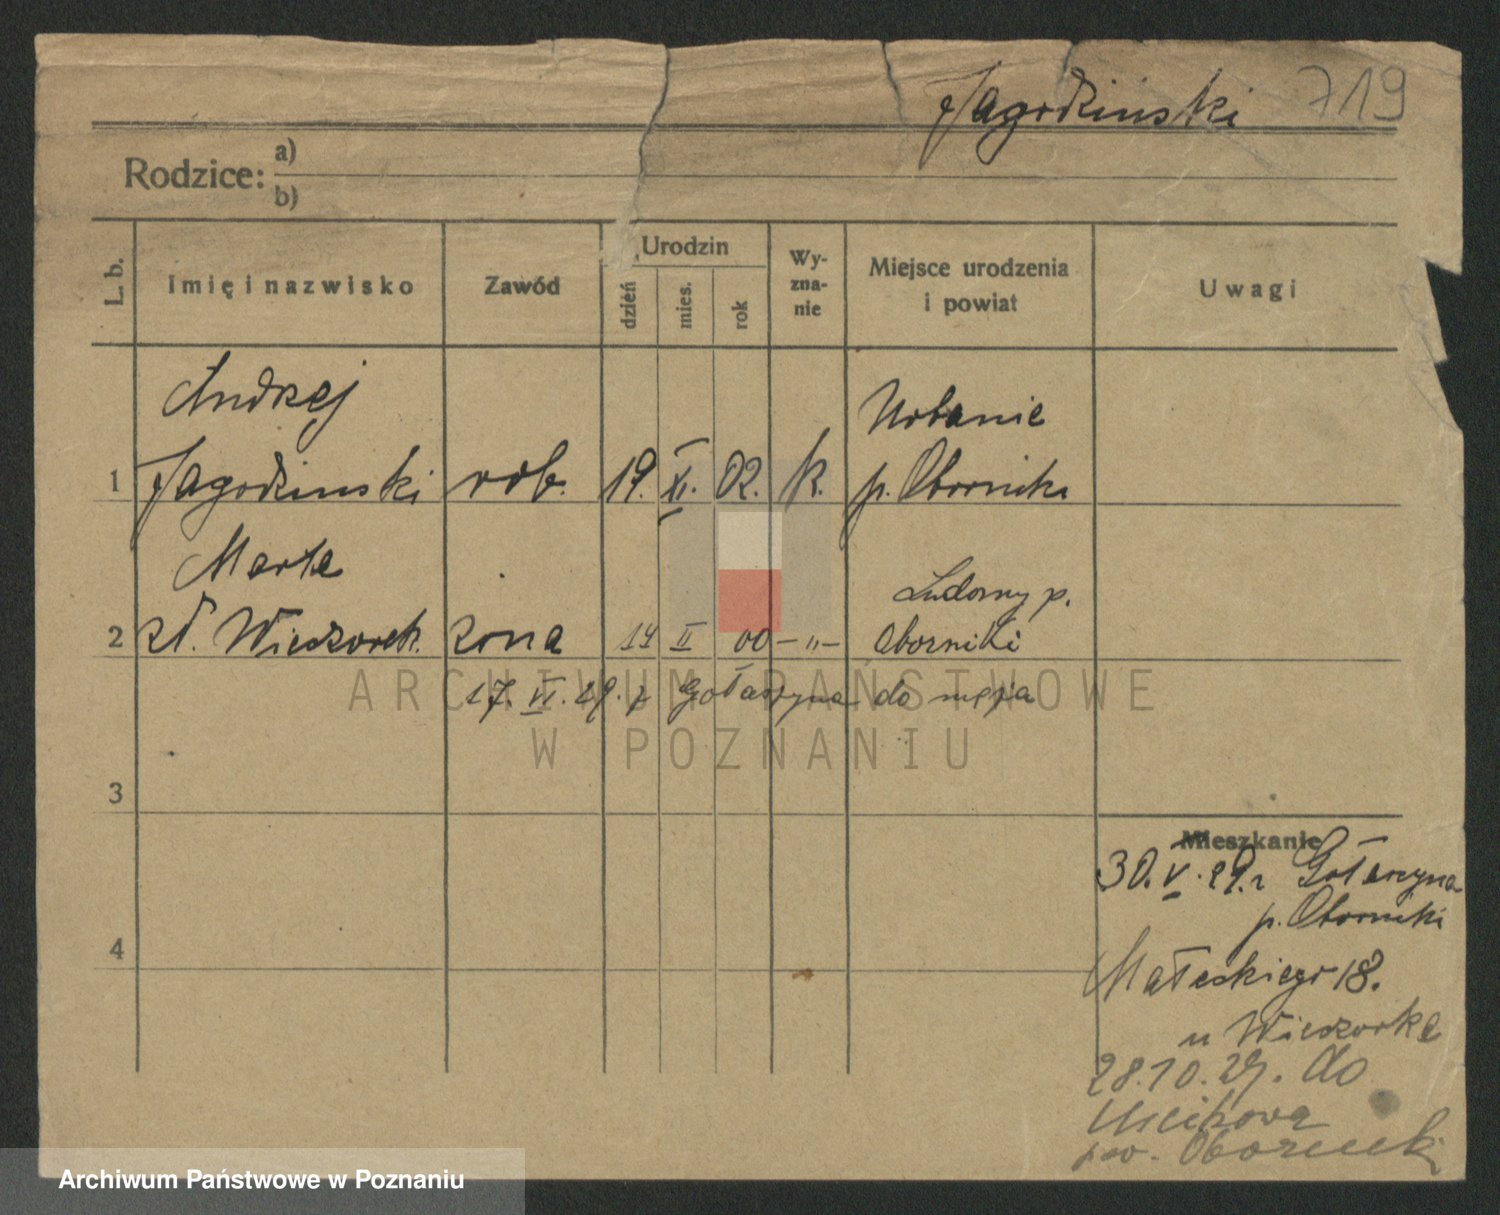 Jagodziński 719
Rodzice: a)
b)
L. b.
Imię i nazwisko
Zawód
Urodzin
dzień
mies.
rok
Wy-
zna-
nie
Miejsce urodzenia
i powiat
Uwagi
Andrzej
Urbanie
1 Jagodzinski rob. 19. XI. 02. k. p. Oborniki
Marta
Ludomy p.
2 zd. Wieczorek. żona 14 II 00 – „ – Oborniki
17. VI. 29. z Gołaszyna do męża
ARCHIWUM PAŃSTWOWE
W POZNANIU
3
Mieszkanie
30. V. 29. z Gołaszyna
p. Oborniki
4
Małeckiego 18.
u Wieczorka
28.10.29. do
pow. Oborniki
Archiwum Państwowe w Poznaniu